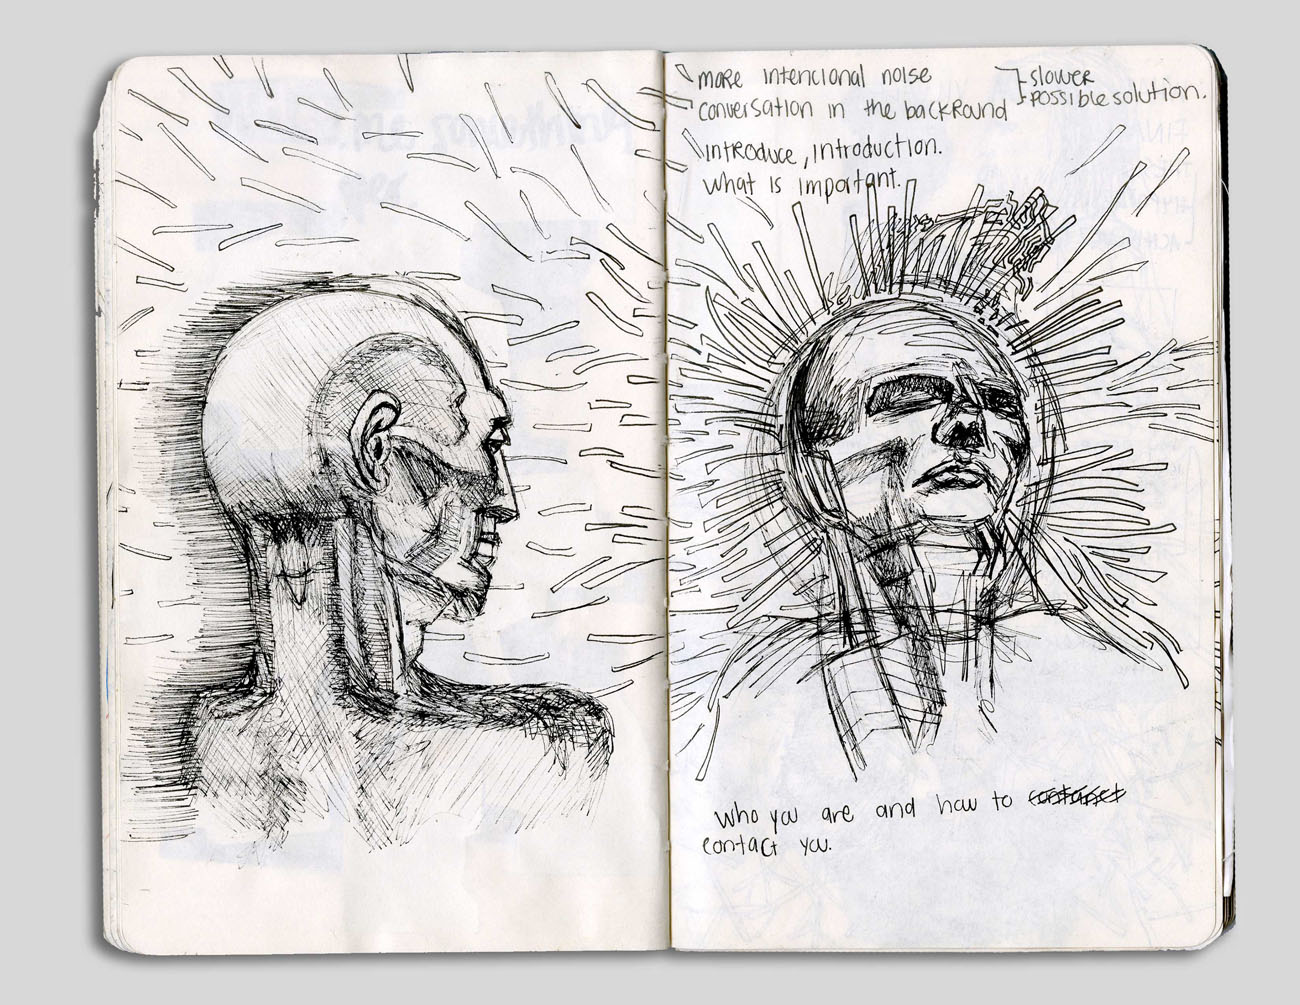 more intencional noise
conversation in the backround
slower
possible solution.
introduce, introduction.
what is important.
Who you are and how to
contact you.